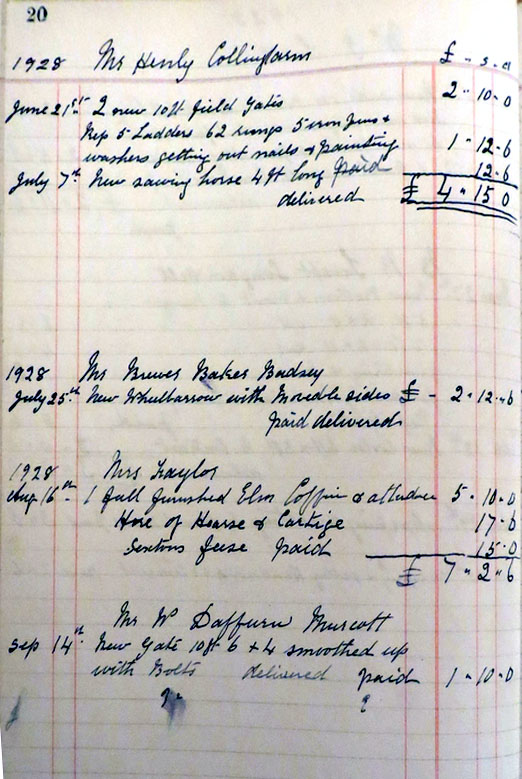 20
1928 Mr Henly Collingfarm £ - s - d
June 21st 2 new 10ft field Gates 2 - 10 - 0
Rep 5 Ladders 62 rungs 5 iron pins &
washers getting out nails & painting 1 - 12 - 6
July 7th New sawing horse 4ft long paid 12 - 6
delivered £ 4 - 15 0
1928 Mr Brewer Baker Badsey
July 25th New Wheelbarrow with Movedble sides £ - 2 - 12 - 6
paid delivered
1928 Mrs Taylor
Aug 16th 1 full furnished Elm Coffin & attendance 5 - 10 - 0
Hire of Hearse & Cartige 17 - 6
Sextons feese paid 15 - 0
£ 7 - 2 - 6
Mr W Daffurn Murcott
Sep 14th New Gate 10ft 6 + 4 smoothed up
with Bolts delivered paid 1 - 10 - 0